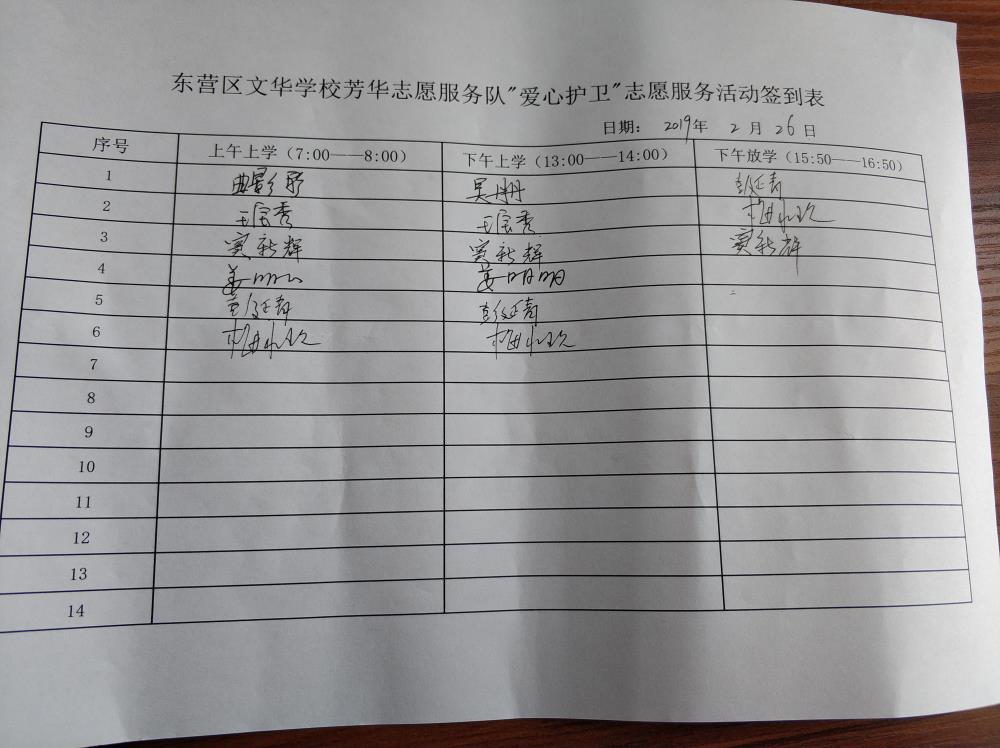 东营区文华学校芳华志愿服务队"爱心护卫"志愿服务活动签到表
日期: 2019年 2月26日
序号 上午上学（7:00——8:00） 下午上学（13:00——14:00） 下午放学（15:50——16:50）
1 吴丹丹 彭延青
2 王宝秀 王宝秀
3 窦新辉 窦新辉 窦新辉
4 姜明明 姜明明
5 彭延青 彭延青
6
7
8
9
10
11
12
13
14